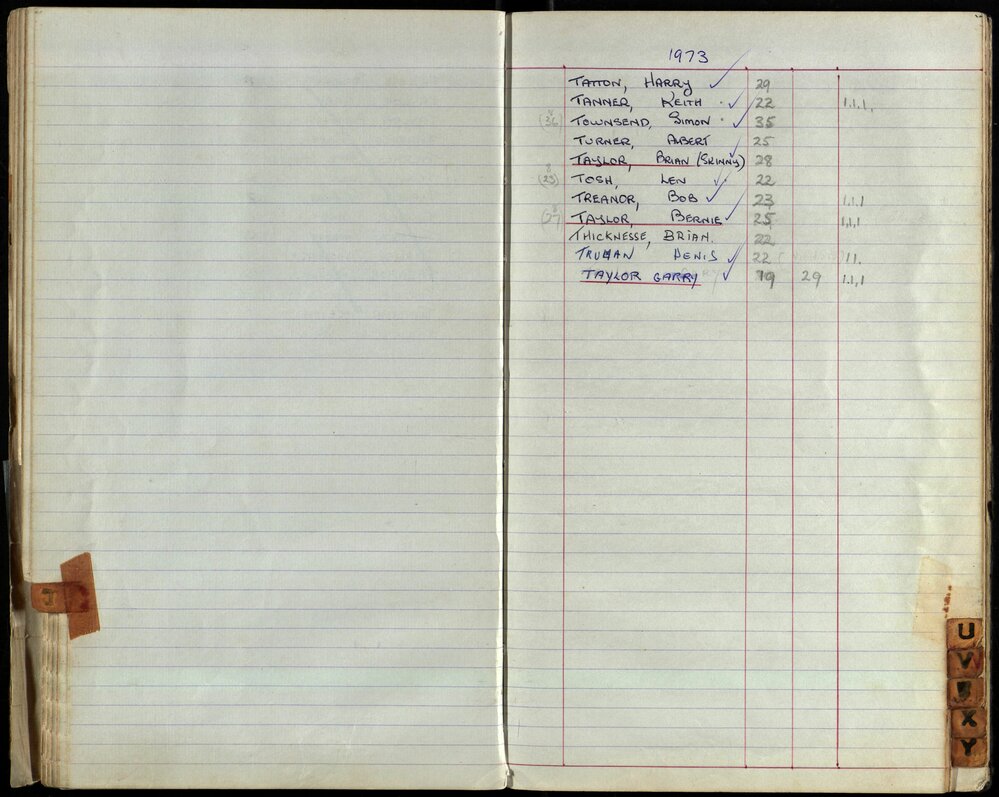 1973
TATTON, HARRY ✓ 29
TANNER, KEITH ✓ 22 1.1.1.
(36) TOWNSEND, SIMON ✓ 35
TURNER, ALBERT 25
TAYLOR, BRIAN (SKINNY) ✓ 28
(23) TOSH, LEN ✓ 22
TREANOR, BOB ✓ 23 1.1.1
(27) TAYLOR, BERNIE ✓ 25 1.1.1
THICKNESSE, BRIAN. 22
TRUMAN DENIS ✓ 22 11.
TAYLOR GARRY ✓ 19 29 1.1.1
T
U
V
X
Y